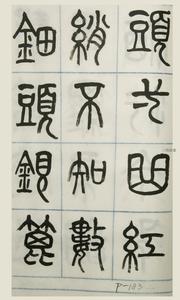 頭弌曲紅
綃不知數
鈿頭銀篦
P-183